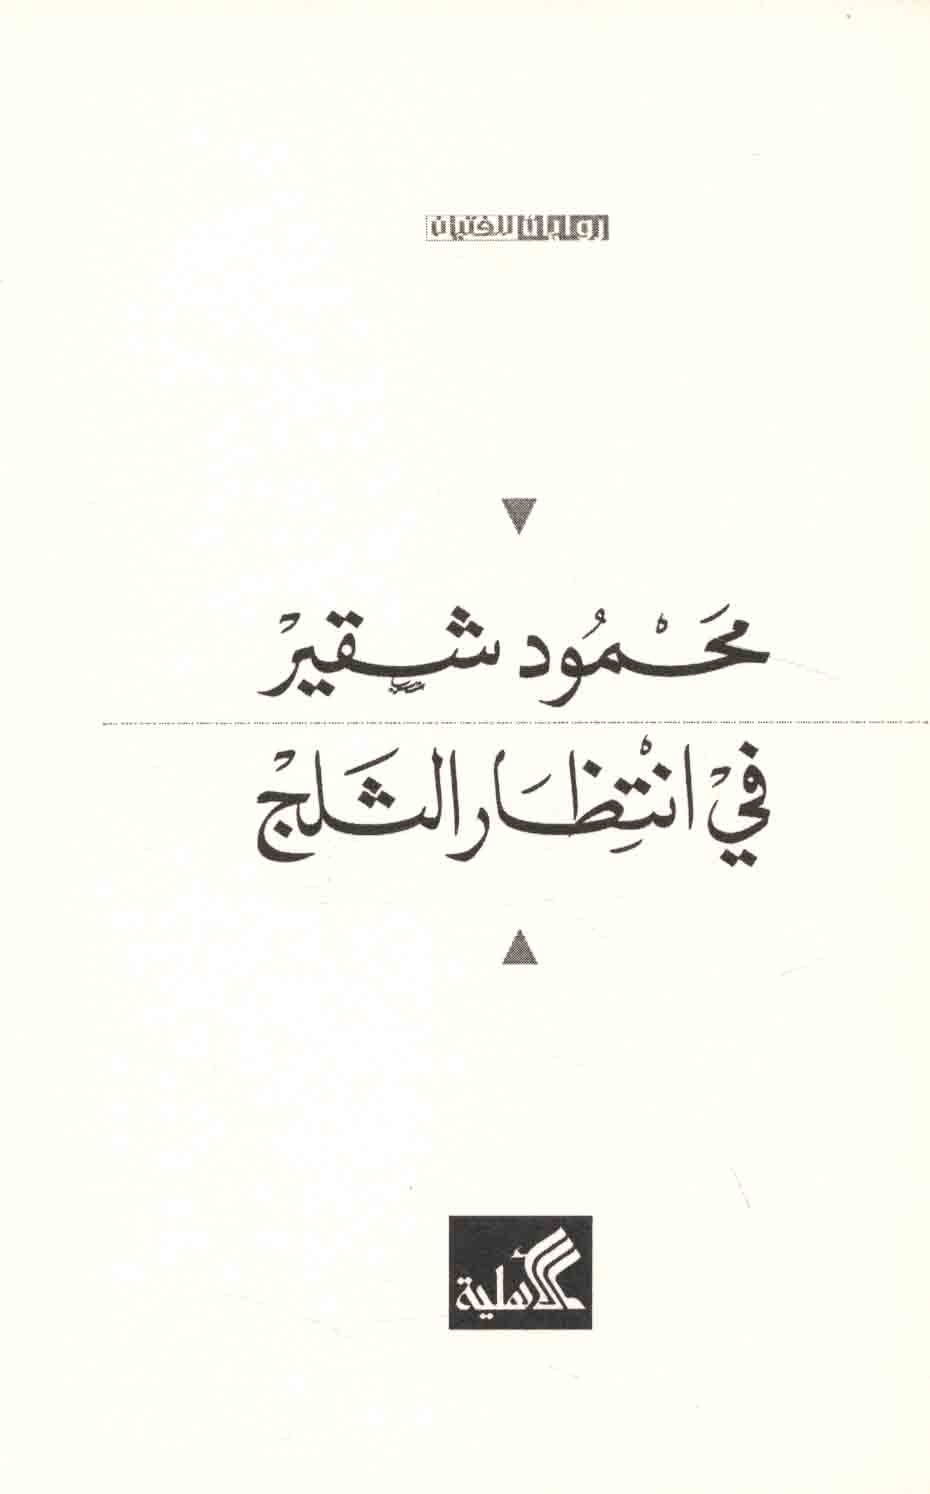 رواية للفتيان
محمود شقير
في انتظار الثلج
الأهلية